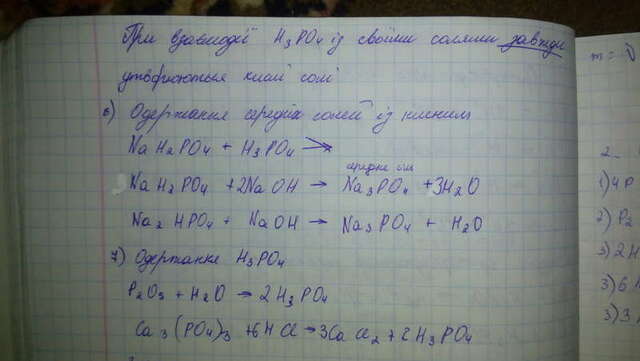 При взаємодії H3PO4 із своїми солями завжди
утворюються кислі солі
6) Одержання середніх солей із кислих
NaH2PO4 + H3PO4 ↛
середня сіль
NaH2PO4 + 2NaOH → Na3PO4 + 3H2O
Na2HPO4 + NaOH → Na3PO4 + H2O
7) Одержання H3PO4
P2O5 + H2O → 2H3PO4
Ca3(PO4)3 + 6HCl → 3CaCl2 + 2H3PO4
m =
2
1) 4P
2) P2
3) 2H
3) 6
3) 3